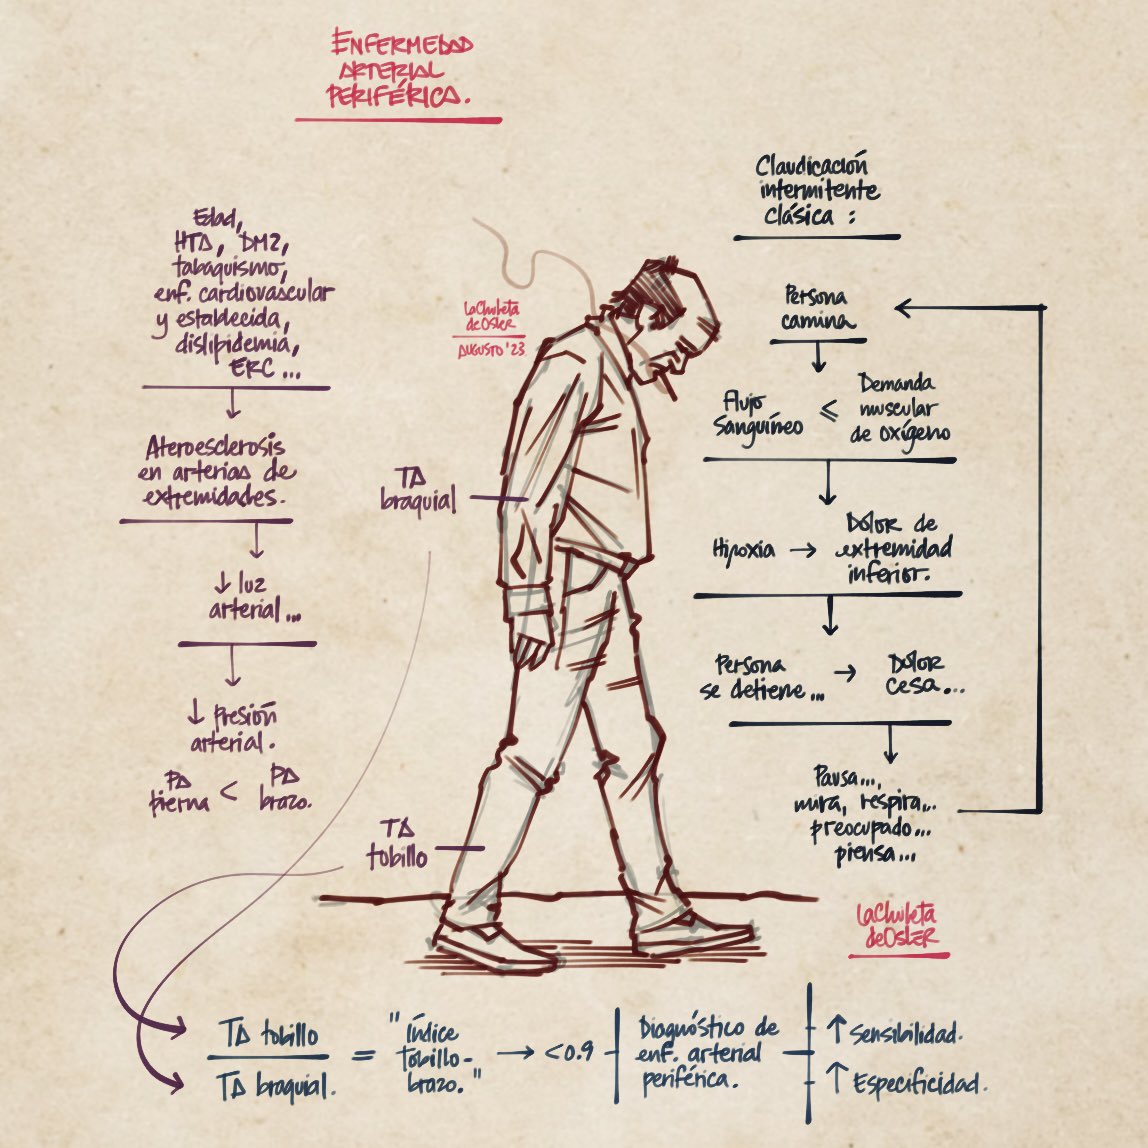 ENFERMEDAD
ARTERIAL
PERIFÉRICA.
Edad,
HTA, DM2,
tabaquismo,
enf. cardiovascular
y establecida,
dislipidemia,
ERC ...
Ateroesclerosis
en arterias de
extremidades.
↓ luz
arterial...
↓ presión
arterial.
PA pierna < PA brazo.
LaChuleta
deOsler
AUGUSTO '23
TA
braquial
TA
tobillo
Claudicación
intermitente
clásica :
Persona
camina
Flujo sanguíneo ≤ Demanda muscular de oxígeno
Hipoxia → Dolor de extremidad inferior.
Persona se detiene... → Dolor cesa...
Pausa...,
mira, respira,..
preocupado...
piensa...
LaChuleta
deOsler
TA tobillo
TA braquial.
= "índice tobillo-brazo." → <0.9
Diagnóstico de
enf. arterial
periférica.
↑ Sensibilidad.
↑ Especificidad.